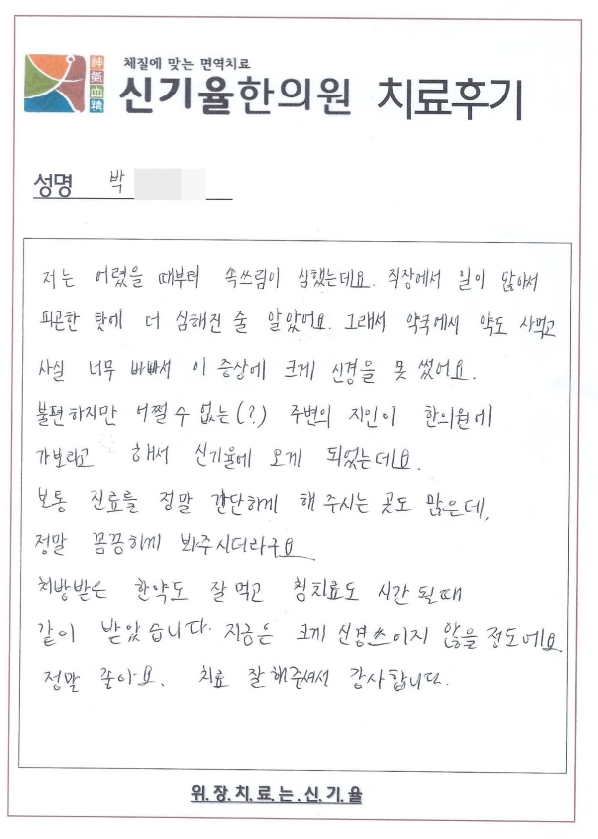 체질에 맞는 면역치료
神氣血精
신기율한의원 치료후기
성명 박
저는 어렸을 때부터 속쓰림이 심했는데요. 직장에서 일이 많아서
피곤한 탓에 더 심해진 줄 알았어요. 그래서 약국에서 약도 사먹고
사실 너무 바빠서 이 증상에 크게 신경을 못 썼어요.
불편하지만 어쩔 수 없는(?) 주변의 지인이 한의원에
가보라고 해서 신기율에 오게 되었는데요.
보통 진료를 정말 간단하게 해 주시는 곳도 많은데,
정말 꼼꼼하게 봐주시더라구요
처방받은 한약도 잘 먹고 침치료도 시간 될때
같이 받았습니다. 지금은 크게 신경쓰이지 않을 정도에요
정말 좋아요. 치료 잘해주셔서 감사합니다.
위.장.치.료.는.신.기.율